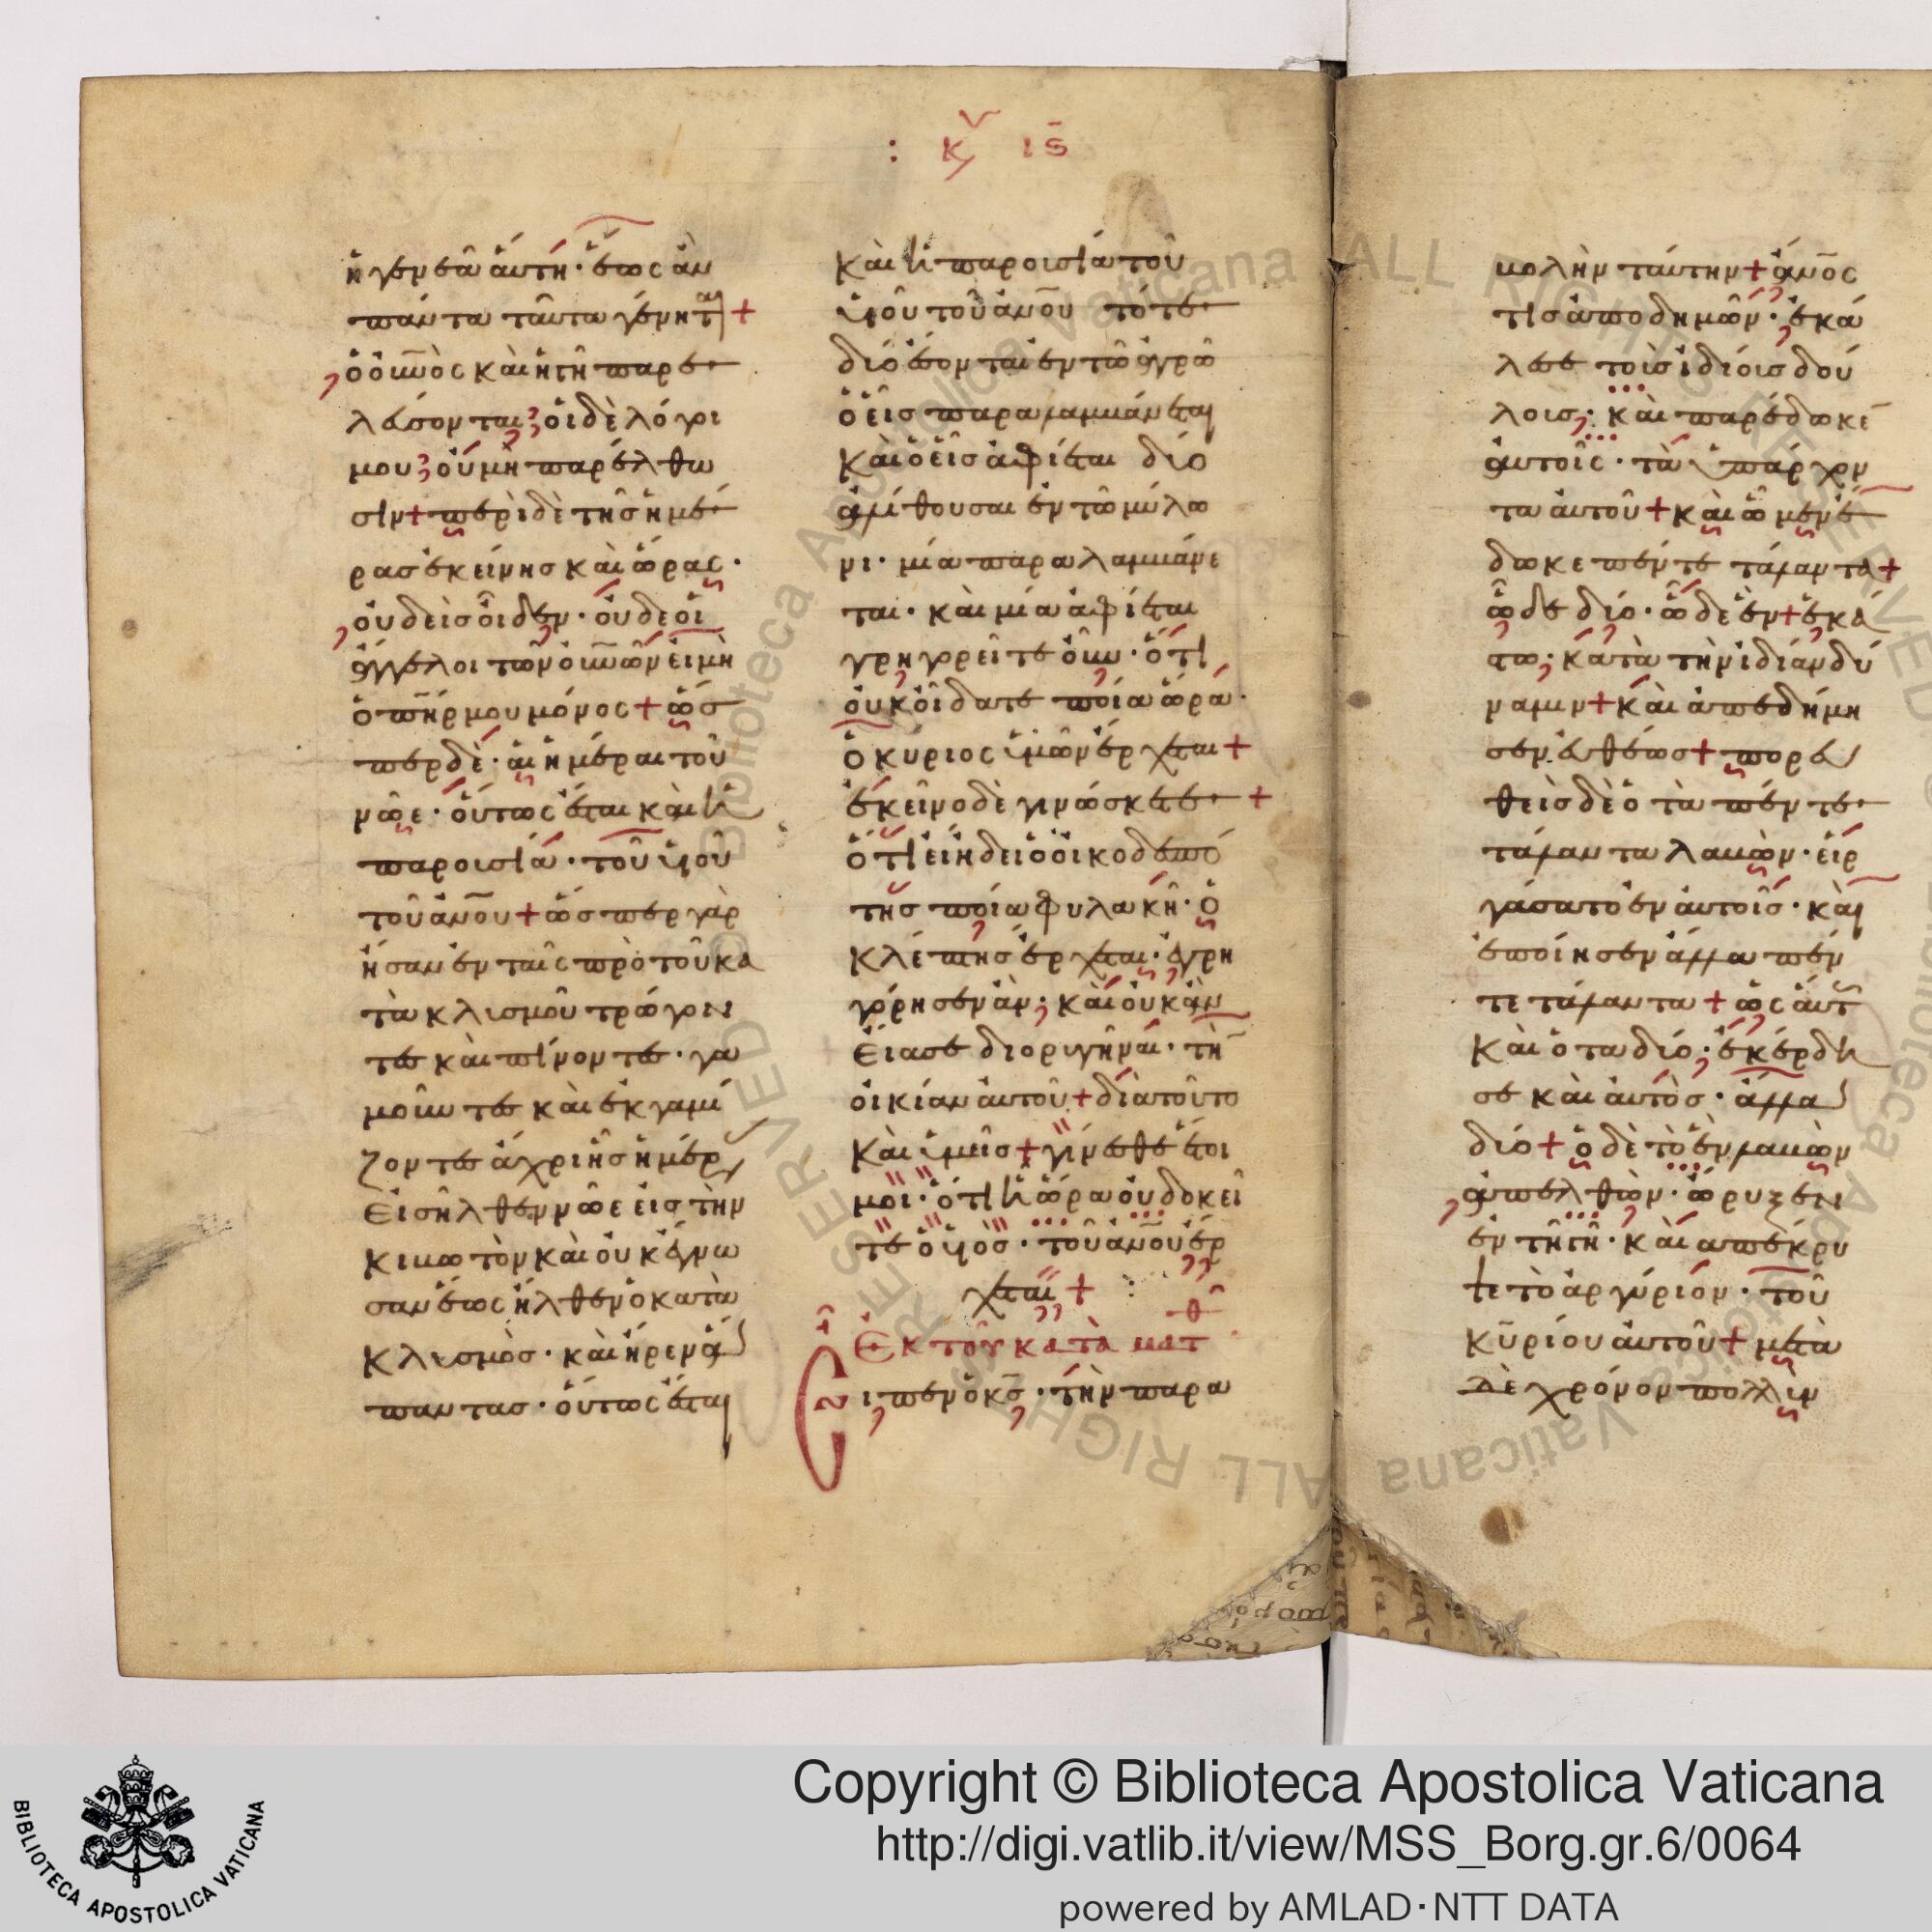 : κυ ις̄
ἡ γενεὰ ἁύτη· ἕως ἂν
πάντα ταῦτα γένηται +
ὁ οὐνὸς καὶ ἡ γῆ παρε
λέσονται· ὁι δὲ λόγοι
μου οὐ μὴ παρέλθω
σιν + περὶ δὲ τῆς ἡμέ
ρας ἐκείνης καὶ ὥρας·
οὐδεὶς οἶδεν· οὐδὲ οἱ
ἄγγελοι τῶν οὐνῶν εἰ μὴ
ὁ πῆρ μου μόνος + ὥσ
περ δὲ· ἁι ἡμέραι τοῦ
νῶε· ὅυτως ἔται καὶ ἡ
παροισία· τοῦ ὑιοῦ
τοῦ ἀνου + ὥσπερ γὰρ
ἦσαν ἐν ταῖς πρὸ τοῦ κα
τὰ κλισμοῦ τρώγον
τε καὶ πίνοντε· γα
μοῦντε καὶ ἐκγαμί
ζοντε ἄχρι ἧς ἡμέρ
εἰσῆλθεν νῶε εἰς τὴν
κιβωτὸν καὶ οὐκ ἔγνω
σαν ἕως ἦλθεν ὁ κατα
κλισμὸς· καὶ ἦρεν ἅ
παντας· ὅυτως ἔται
καὶ ἡ παροισία τοῦ
ὑιοῦ τοῦ ἀνου τότε
διό ἔσονται ἐν τῶ ἀγρῶ
ὁ εἷς παραλαμβάνεται
καὶ ὁ εἷς ἀφίεται διό
ἀλίθουσαι ἐν τῶ μύλω
νι· μία παραλαμβάνε
ται· καὶ μία ἀφίεται
γρηγορεῖτε οὖν· ὅτι
οὐκ οἴδατε ποία ὥρα·
ὁ κύριος ὑμῶν ἔρχεται +
ἐκεῖνο δὲ γινώσκετε +
ὅτι εἰ ἤδει ὁ οἰκοδεσπό
της ποία φυλακῆ· ὁ
κλέπτης ἔρχεται· ἐγρη
γόρησεν ἂν· καὶ οὐκ ἂν
εἴασε διοριγῆναι· τὴν
οἰκίαν ἀυτοῦ + διὰ τοῦτο
καὶ ὑμεῖς + γίνεσθε ἕτοι
μοι· ὅτι ἡ ὥρα οὐ δοκεῖ
τε ὁ ὑιὸς· τοῦ ἀνου ἔρ
χεται + :
Ἐκ τοῦ κατὰ ματθ
ιπεν ὁ κς· τὴν παρα
βολὴν ταύτην + ἄνος
τις ἀποδημῶν· ἐκά
λεσε τοὶς ἰδίοις δού
λοις· καὶ παρέδωκε
ἀυτοῖς· τὰ ὑπάρχον
τα ἀυτοῦ + καὶ ὧ μὲν ἔ
δωκε πέντε τάλαντα +
ὧ δε διό· ὧ δὲ ἓν + ἑκά
στω· κατὰ τὴν ἰδίαν δύ
ναμιν + καὶ ἀπεδήμη
σεν ἐυθέως + πορευ
θεὶς δὲ ὁ τὰ πέντε
τάλαντα λαβὼν· εἰρ
γάσατο ἐν ἀυτοῖς· καὶ
ἐποίησεν ἄλλα πέν
τε τάλαντα + ὡς ἀυτ
καὶ ὁ τα διό· ἐκέρδη
σε καὶ ἀυτὸς· ἄλλα
διό + ὁ δὲ τὸ ἓν λαβὼν
ἀπελθὼν· ὤρυξεν
ἐν τῆ γῆ· καὶ απέκρυ
ψε τὸ ἀργύριον· τοῦ
κυρίου ἀυτοῦ + μετὰ
δὲ χρόνον πολλὺν
Copyright © Biblioteca Apostolica Vaticana
http://digi.vatlib.it/view/MSS_Borg.gr.6/0064
powered by AMLAD·NTT DATA
BIBLIOTECA APOSTOLICA VATICANA